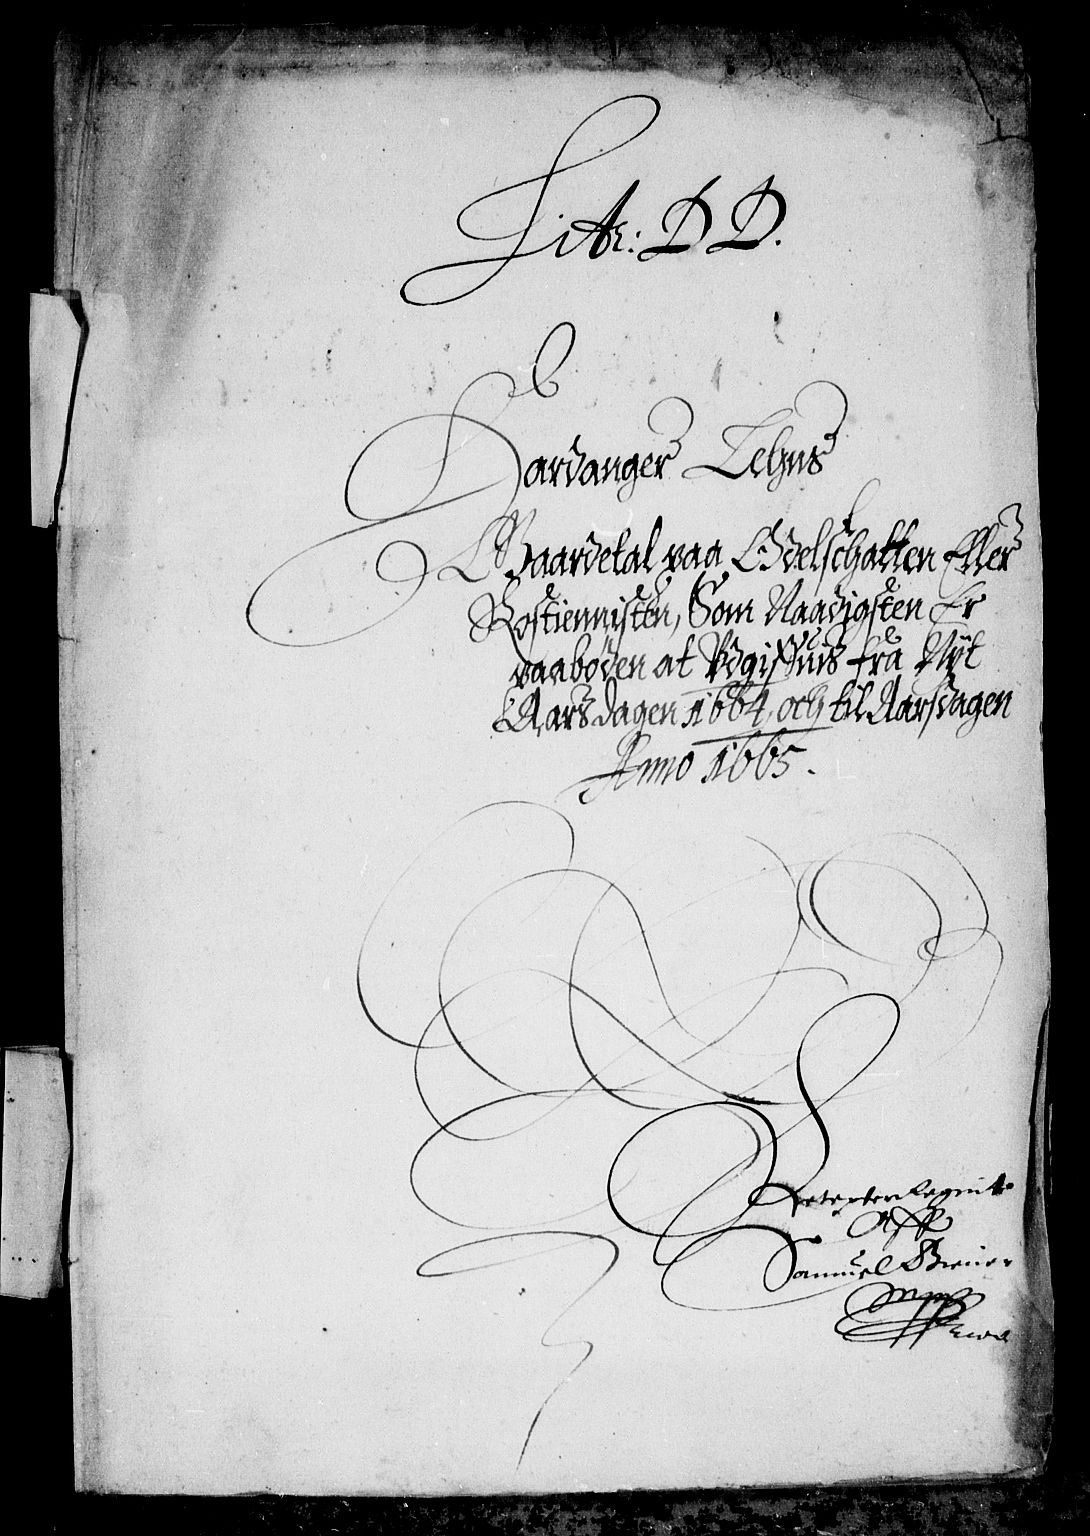 Litr: DD.
Hardanger Lehns
Gaardetal paa Odelschatten Eller
Rostiennisten, Som Naadigsten Er
paaboden at Udgiffuis fra Nÿt
Aars dagen 1664, och til Aarsdagen
Anno 1665.
Aff
Samuel